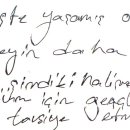 şte yaşamış o
eyin daha
şimdiki haline
için geçe
tavsiye etm